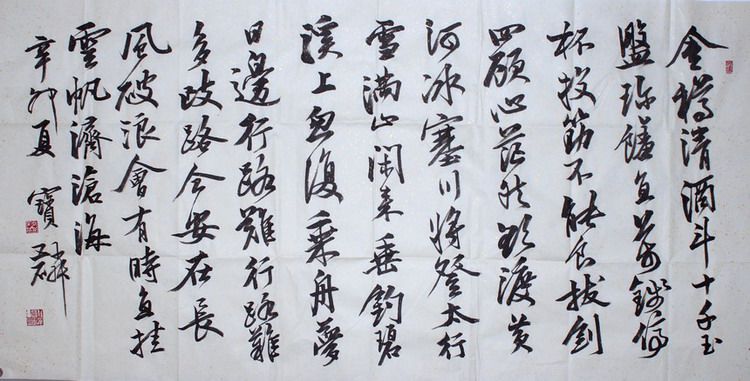 金樽清酒斗十千玉
盤珍饈直萬錢停
杯投筯不能食拔劍
四顧心茫然欲渡黄
河冰塞川将登太行
雪滿山閑来垂釣碧
溪上忽復乘舟夢
日邊行路難行路難
多歧路今安在長
風破浪會有時直挂
雲帆濟滄海
辛卯夏 寶麟